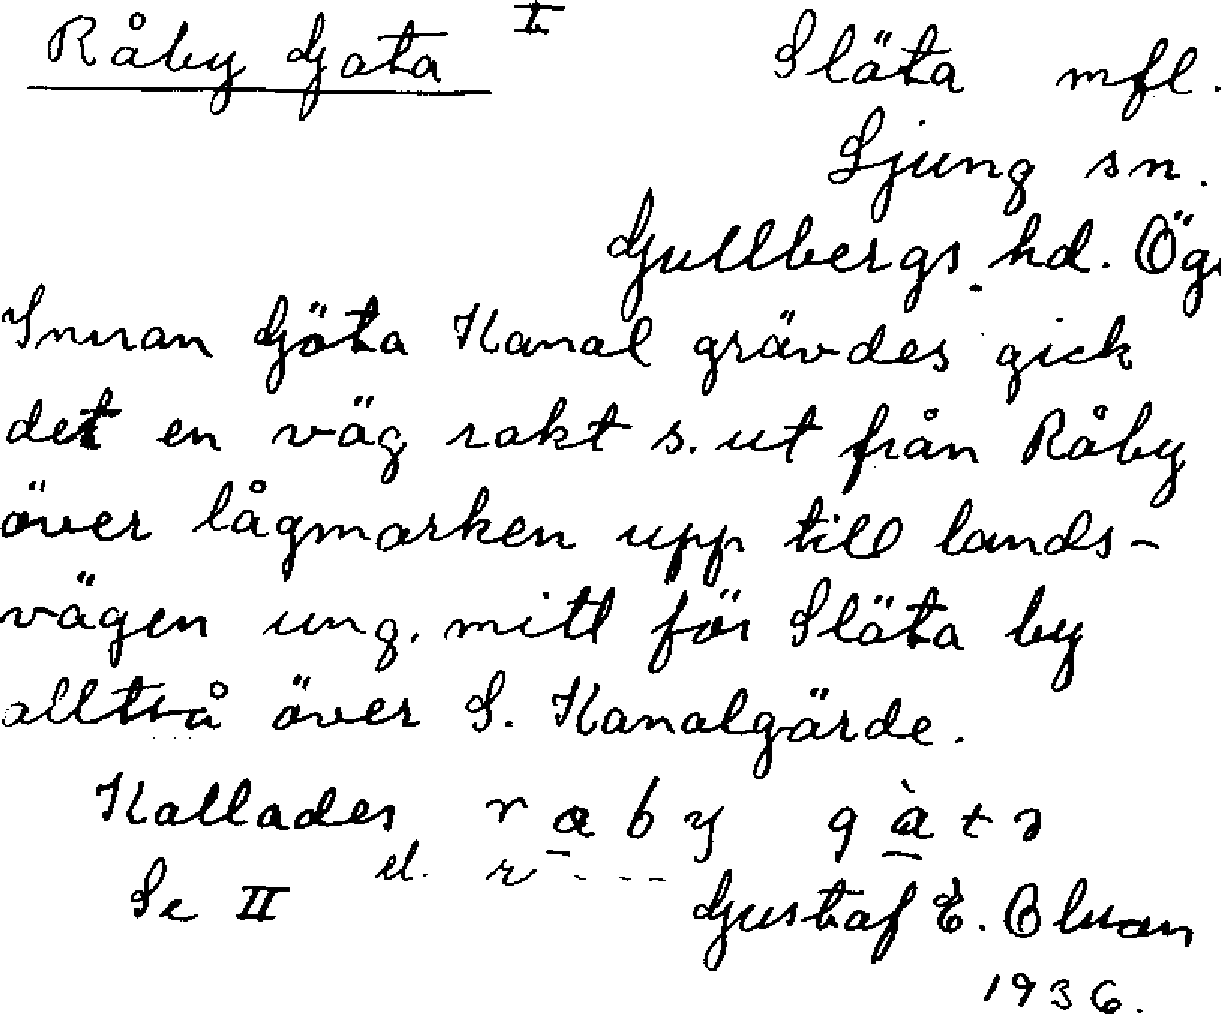 Råby Gata I
Släta mfl.
Ljung sn.
Gullbergs hd. Ög.
Innan Göta Kanal grävdes gick
det en väg rakt s. ut från Råby
över lågmarken upp till lands-
vägen ung. mitt för Släta by
alltså över S. Kanalgärde.
Kallades
el.
Se II
Gustaf E.
1936.